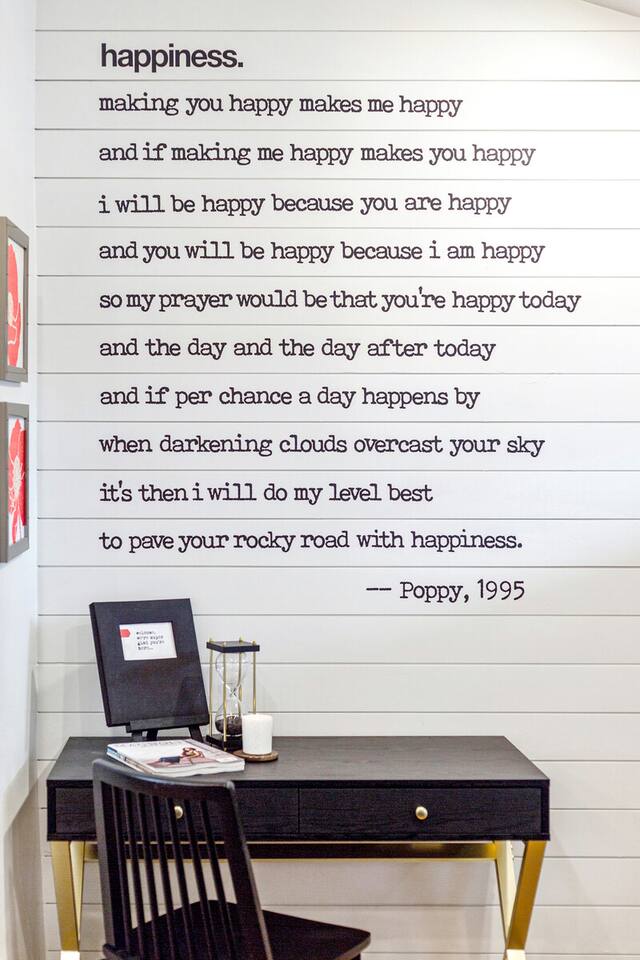 happiness.
making you happy makes me happy
and if making me happy makes you happy
i will be happy because you are happy
and you will be happy because i am happy
so my prayer would be that you're happy today
and the day and the day after today
and if per chance a day happens by
when darkening clouds overcast your sky
it's then i will do my level best
to pave your rocky road with happiness.
-- Poppy, 1995
welcome.
we're super
glad you're
here...